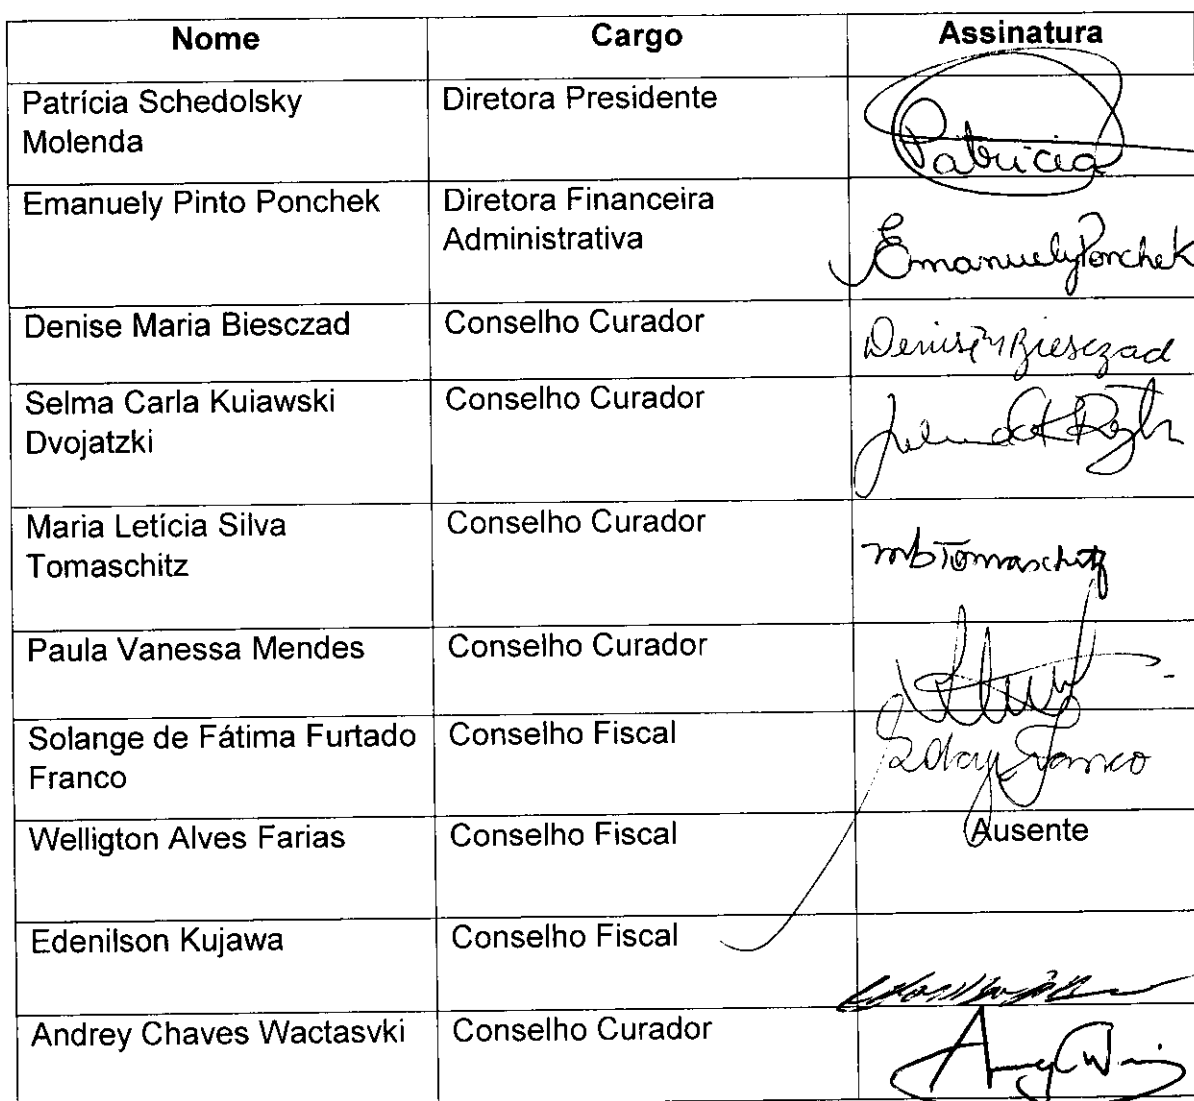 Nome Cargo Assinatura
Patrícia Schedolsky Diretora Presidente
Molenda
Patricia
Emanuely Pinto Ponchek Diretora Financeira
Administrativa
EmanuelyPonchek
Denise Maria Biesczad Conselho Curador
Denise M Biesczad
Selma Carla Kuiawski Conselho Curador
Dvojatzki
Maria Letícia Silva Conselho Curador
Tomaschitz
Tomaschitz
Paula Vanessa Mendes Conselho Curador
Solange de Fátima Furtado Conselho Fiscal
Franco
Franco
Welligton Alves Farias Conselho Fiscal Ausente
Edenilson Kujawa Conselho Fiscal
Andrey Chaves Wactasvki Conselho Curador